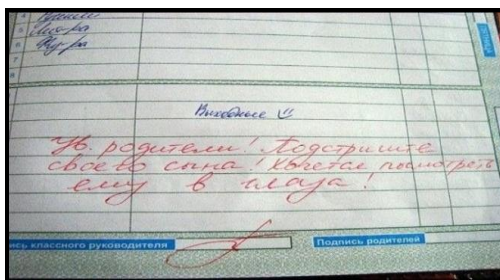 4
5
6
7
8
Выходные
Ув. родители! Подстригите
своего сына! Хочется посмотреть
ему в глаза!
ись классного руководителя
Подпись родителей